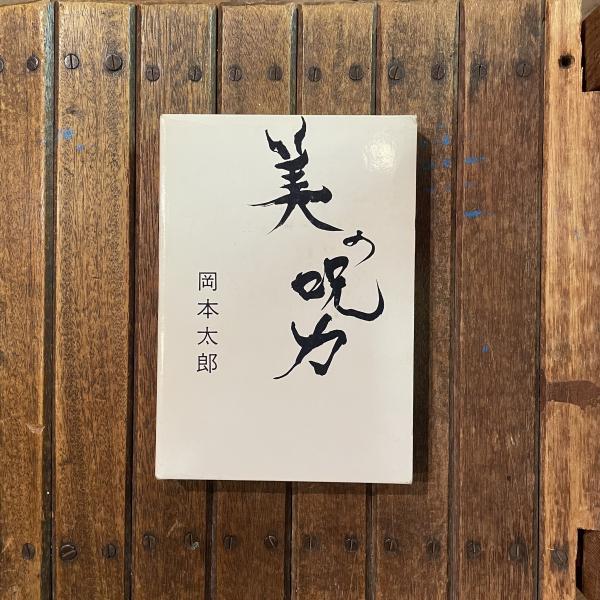 美の呪力
岡本太郎